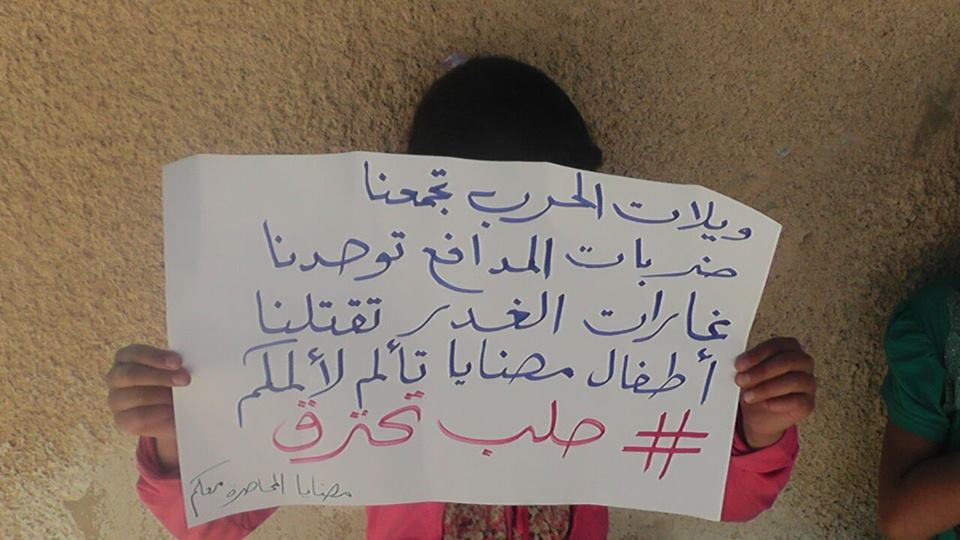 ويلات الحرب تجمعنا
ضربات المدافع توحدنا
غارات الغدر تقتلنا
أطفال مضايا تألم لألمكم
# حلب تحترق
مضايا المحاصرة معكم